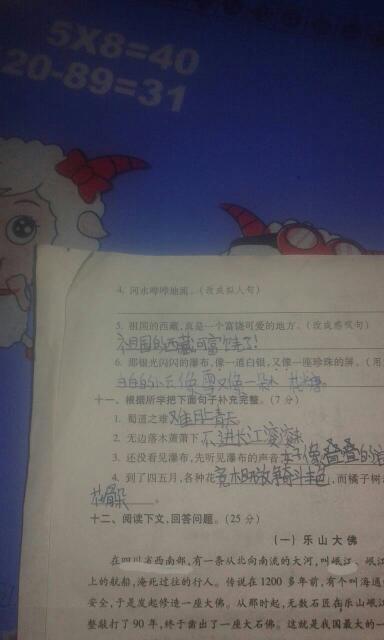 5X8=40
20-89=31
4. 河水哗哗地流。(改成拟人句)
5. 祖国的西藏,真是一个富饶可爱的地方。(改成感叹句)
祖国的西藏可富饶了!
6. 那银光闪闪的瀑布,像一道白银,又像一座珍珠的屏。(用
白白的云像雪又像一朵
十一、根据所学把下面句子补充完整。(7 分)
1. 蜀道之难难于上青天
2. 无边落木萧萧下不进长江滚滚来
3. 还没看见瀑布,先听见瀑布的声音,好像叠叠的
4. 到了四五月,各种花竞相开放争奇斗艳,而橘子树
花骨朵。
十二、阅读下文,回答问题。(25 分)
(一) 乐山大佛
在四川省西南部,有一条从北向南流的大河,叫岷江、岷江
上的航船,淹死过往的行人。传说在 1200 多年前,有个叫海通
安全,于是发起修造一座大佛。从那时起,无数石匠在乐山
整敲打了 90 年,终于凿出了一座大石佛。这就是我国最大的一